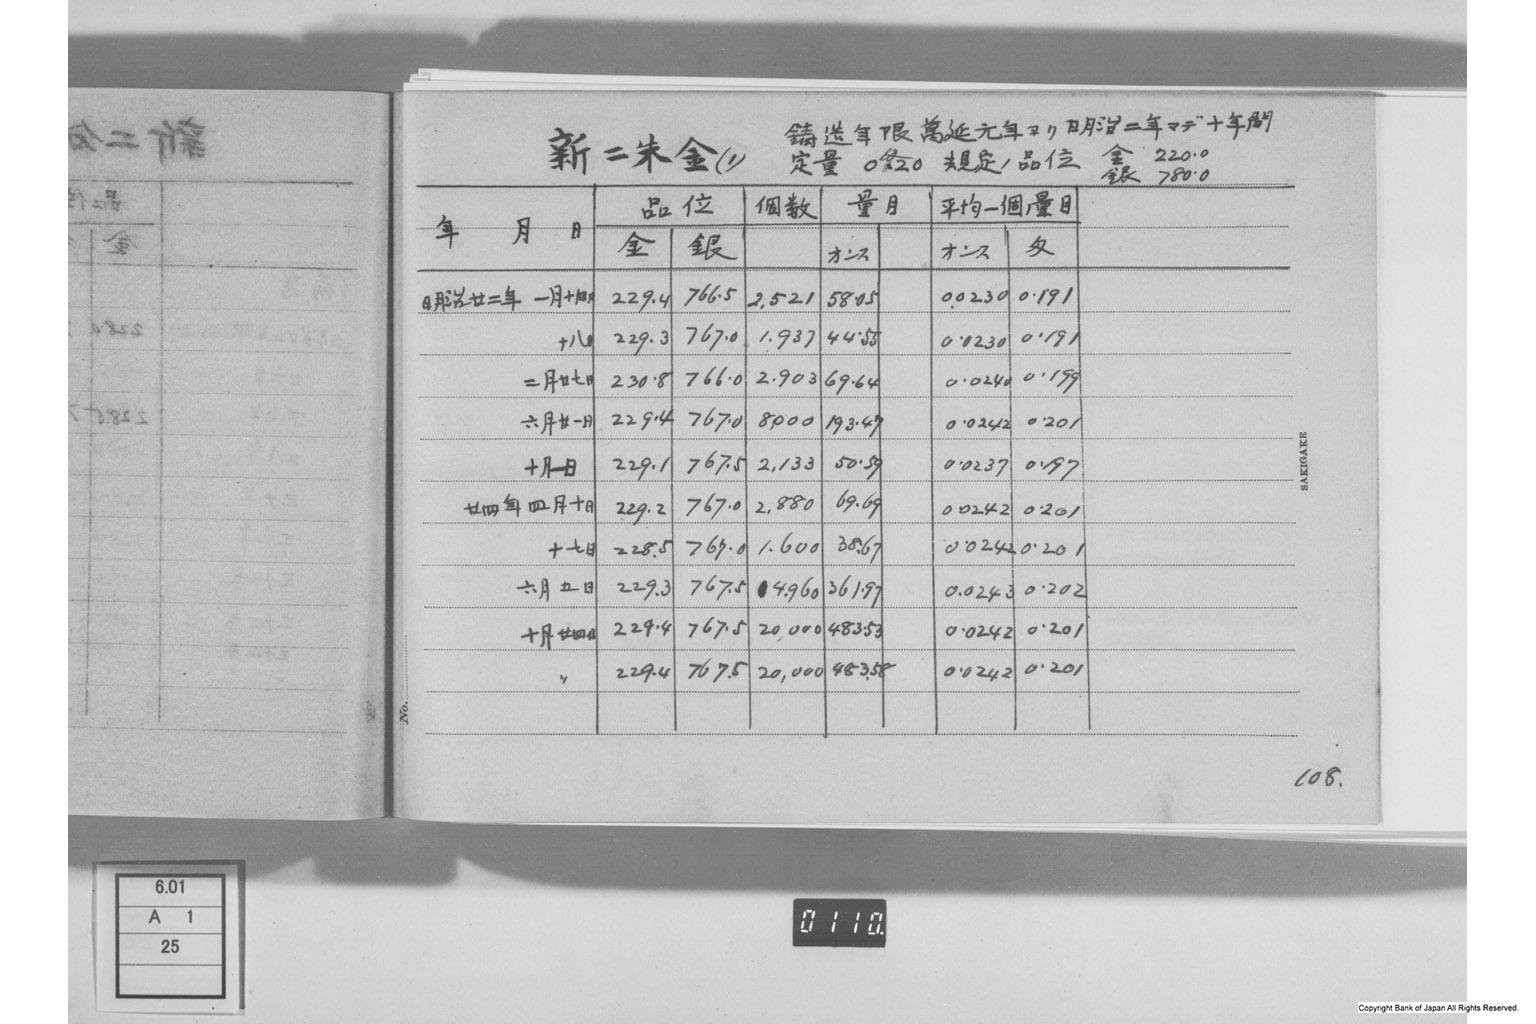 新二朱金(1) 鋳造年限 萬延元年ヨリ明治二年マデ十年間
定量 0匁20 規定ノ品位 金 220.0
銀 780.0
年 月 日 品位 個数 量目 平均一個ノ量目
金 銀 オンス オンス 匁
明治廿二年 一月十四日 229.4 766.5 2,521 58.05 0.0230 0.191
十八日 229.3 767.0 1.937 44.55 0.0230 0.191
二月廿七日 230.8 766.0 2.903 69.64 0.0240 0.199
六月廿一日 229.4 767.0 8,000 193.47 0.0242 0.201
十月一日 229.1 767.5 2,133 50.59 0.0237 0.197
廿四年四月十日 229.2 767.0 2,880 69.69 0.0242 0.201
十七日 228.5 767.0 1.600 38.67 0.0242 0.201
六月五日 229.3 767.5 14.960 361.97 0.0243 0.202
十月廿四日 229.4 767.5 20,000 483.53 0.0242 0.201
〃 229.4 767.5 20,000 483.58 0.0242 0.201
SAKIGAKE
No.
108.
6.01
A 1
25
0110.
Copyright Bank of Japan All Rights Reserved.